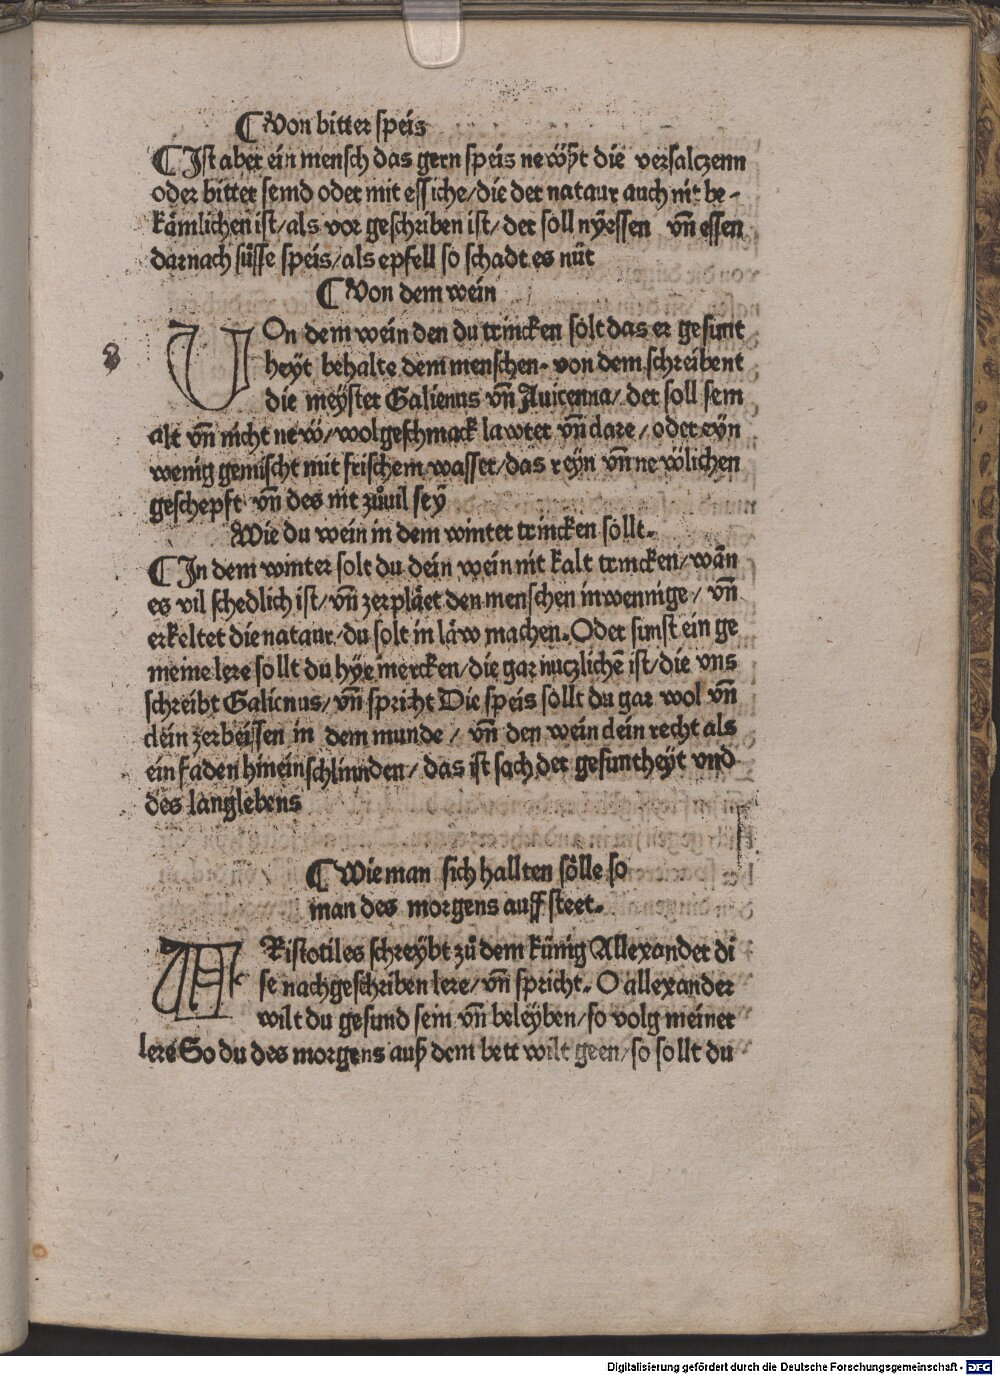 ¶ Von bitter speis
¶ Ist aber ein mensch das gern speis neẅst die versalczenn
oder bitter seind oder mit essiche/die der nataur auch nit be-
kämlichen ist/als vor geschriben ist/der soll nÿessen vn̄ essen
darnach süsse speis/als epfell so schadt es nüt
¶ Von dem wein
VOn dem wein den du trincken solt das er gesunt
heÿt behalte dem menschen. von dem schreibent
die meÿster Galienus vn̄ Auicenna/der soll sein
alt vn̄ nicht neẅ/wolgeschmack lawter vn̄ clare/oder eÿn
wenig gemischt mit frischem wasser/das reÿn vn̄ neẅlichen
geschepft vn̄ des nit zůuil seÿ
Wie du wein in dem winter trincken sollt.
¶ In dem winter solt du dein wein nit kalt trincken/wān
es vil schedlich ist/vn̄ zerpläet den menschen inwennige/vn̄
erkeltet die nataur/du solt in läw machen. Oder sunst ein ge
meine lere sollt du hÿe mercken/die gar nuczlichē ist/die vns
schreibt Galienus/vn̄ spricht Die speis sollt du gar wol vn̄
clein zerbeissen in dem munde/vn̄ den wein clein recht als
ein faden hinein schlinnden/das ist sach der gesuntheÿt vnd
des langlebens
¶ Wie man sich hallten sölle so
man des morgens auff steet.
ARistotiles schreÿbt zů dem künig Allexander di
se nachgeschriben lere/vn̄ spricht. O allexander
wilt du gesund sein vn̄ beleÿben/so volg meiner
lere So du des morgens auß dem bett wilt geen/so sollt du
Digitalisierung gefördert durch die Deutsche Forschungsgemeinschaft - DFG